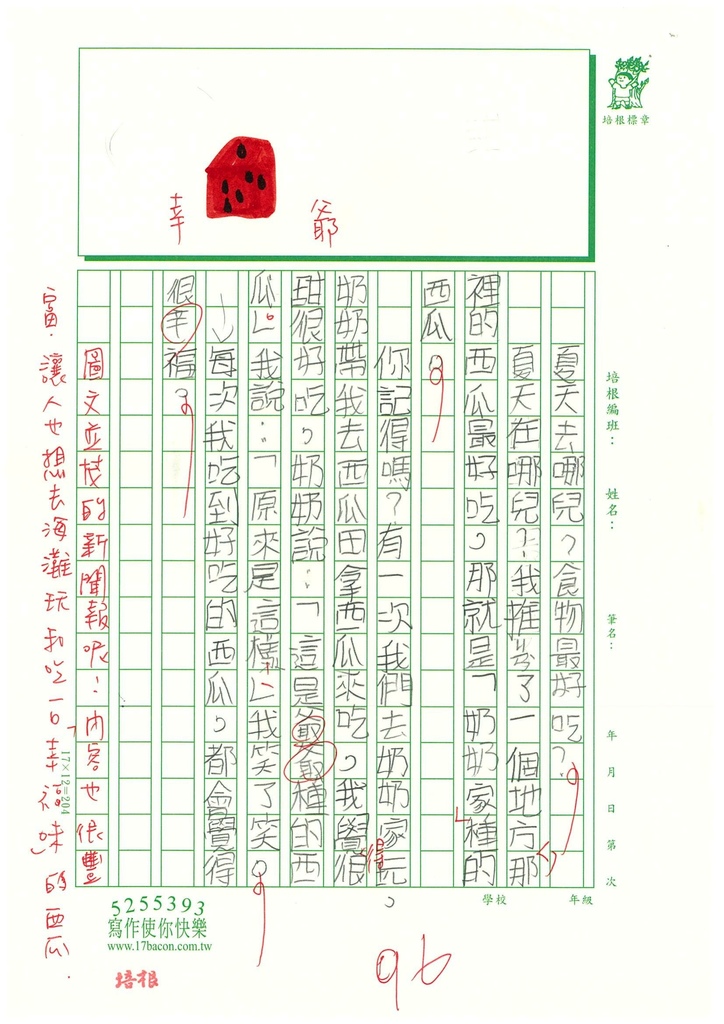 培根標章
幸
爺
培根編班：
姓名：
筆名：
年 月 日 第 次
學校
年級
夏天去哪兒？食物最好吃？
夏天在哪兒？我推荐了一個地方那
裡的西瓜最好吃，那就是「奶奶家種的
西瓜。
你記得嗎？有一次我們去奶奶家玩，
奶奶帶我去西瓜田拿西瓜來吃。我覺得很
甜很好吃，奶奶說：「這是爺種的西
瓜。」我說：「原來是這樣」我笑了笑。
每次我吃到好吃的西瓜，都會覺得
很幸福。
圖文並茂的新聞報呢！內容也很豐
富，讓人也想去海灘玩和吃一口「幸福味」的西瓜.
17×12=204
96
5255393
寫作使你快樂
www.17bacon.com.tw
培根